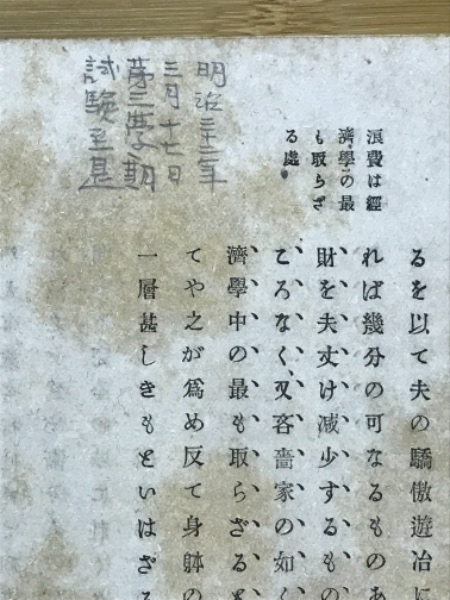 明治年
三月十七日
第三學期
試験至是
浪費は經
濟學の最
も取らざ
る處
るを以て夫の驕傲遊冶に
れば幾分の可なるものあ
財を夫丈け減少するもの
ころなく、又吝嗇家の如く
濟學中の最も取らざると
てや之が爲め反て身躰の
一層甚しきもといはざる